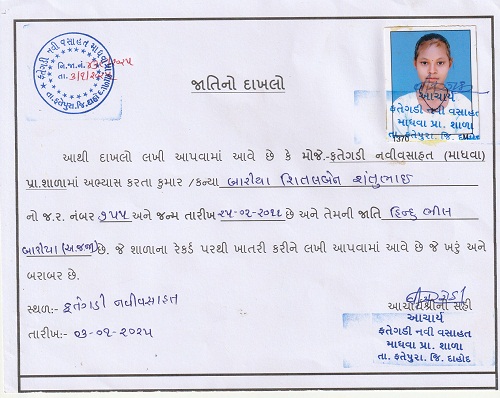 ફતેગડી નવી વસાહત માધવા પ્રા. શાળા
નિ.જા.નં.
તા.
તા. ફતેપુરા. જિ. દાહોદ
જાતિનો દાખલો
આચાર્ય
ફતેગડી નવી વસાહત
માધવા પ્રા. શાળા
તા. ફતેપુરા. જિ. દાહોદ
આથી દાખલો લખી આપવામાં આવે છે કે મોજે.-ફતેગડી નવીવસાહત (માધવા)
પ્રા.શાળામાં અભ્યાસ કરતા કુમાર /કન્યા બારીયા શિતલબેન શંતુભાઇ
નો જ.ર. નંબર ૧૫૫ અને જન્મ તારીખ ૨૫-૦૨-૨૦૧૧ છે અને તેમની જાતિ હિન્દુ ભીલ
બારીયા (અ.જજા) છે. જે શાળાના રેકર્ડ પરથી ખાતરી કરીને લખી આપવામાં આવે છે જે ખરું અને
બરાબર છે.
સ્થળ:- ફતેગડી નવીવસાહત
તારીખ:- ૦૩-૦૨-૨૦૨૫
આચાર્યશ્રીની સહી
આચાર્ય
ફતેગડી નવી વસાહત
માધવા પ્રા. શાળા
તા. ફતેપુરા. જિ. દાહોદ